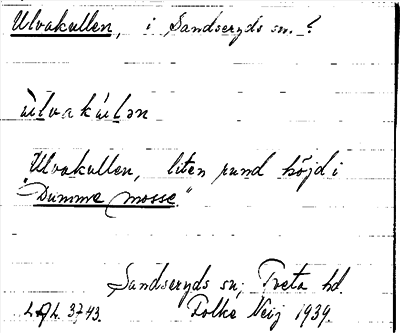 Ulvakullen, i Sandseryds sn. ?
ùlvakúlən
Ulvakullen, liten rund höjd i
"Dumme mosse."
Sandseryds sn, Tveta hd.
Folke Neij 1939.